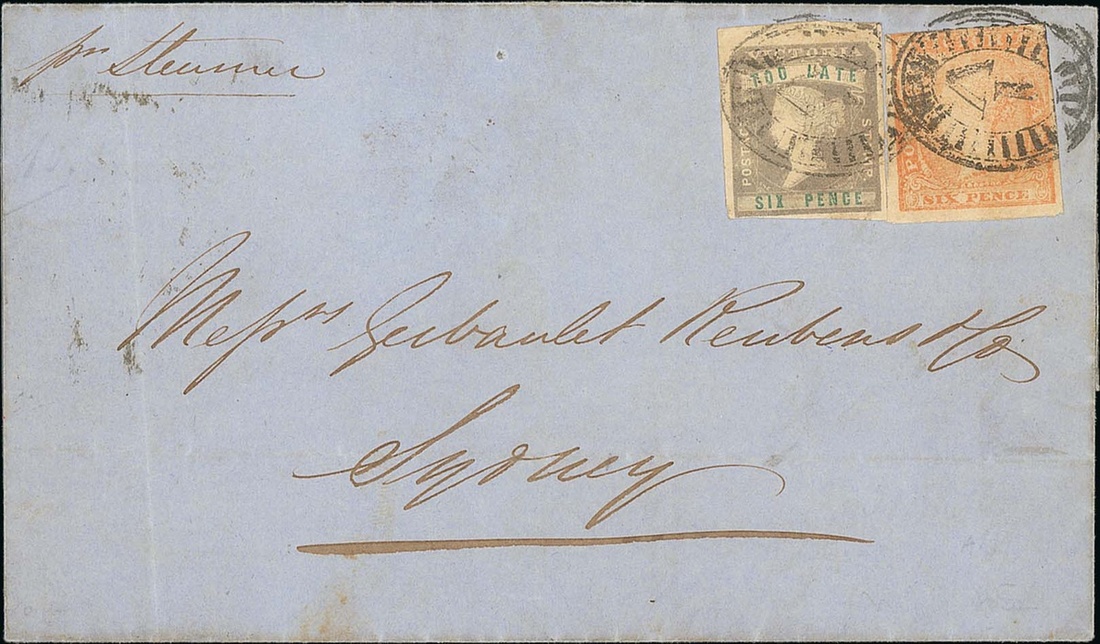 pr Steamer
VICTORIA
TOO LATE
POSTAGE STAMP
SIX PENCE
SIX PENCE
1 V
Messrs Gibault Reubens & Co
Sydney